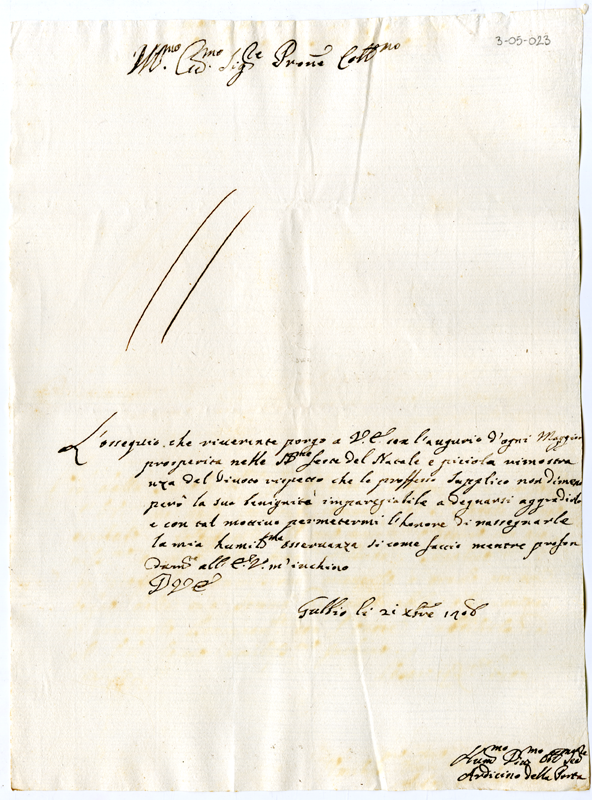 3-05-023
Ill.mo Ecc.mo Sig.re Prone Coll.mo
L'ossequio che riverente porgo a V.E. con l'augurio d'ogni Maggior
prosperità nelle SS.me feste del Natale è picciola rimostra
nza del divoto rispetto che le professo supplico non dimeno
però la sua benignità impareggiabile a degnarsi aggradirlo
e con tal mottivo permetermi l'honore di rassegnarle
la mia humil.ma osservanza si come faccio mentre profon
dam.te all'E.V. m'inchino
D V E
Gubbio li 21 xbre 1706
Hum.mo Div.mo Obl.mo Ser.
Ardicino della Porta